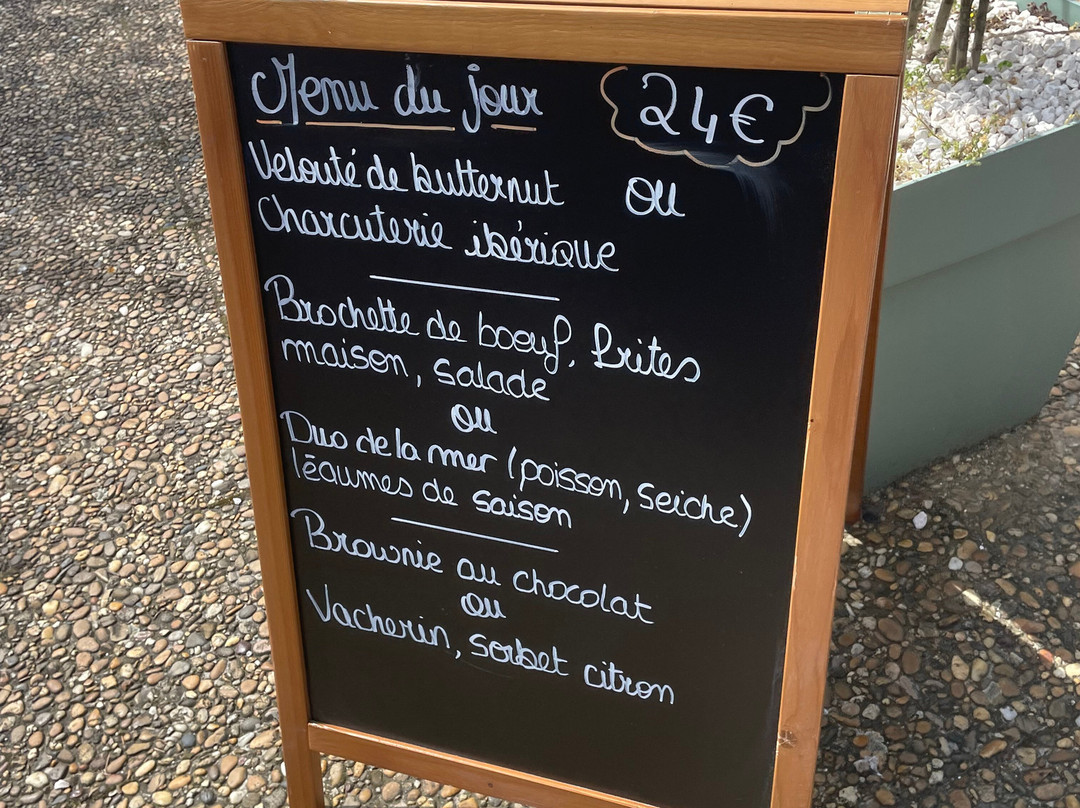 Menu du jour 24€
Velouté de butternut ou
Charcuterie ibérique
Brochette de boeuf, frites
maison, salade
ou
Duo de la mer (poisson, seiche)
légumes de saison
Brownie au chocolat
ou
Vacherin, sorbet citron